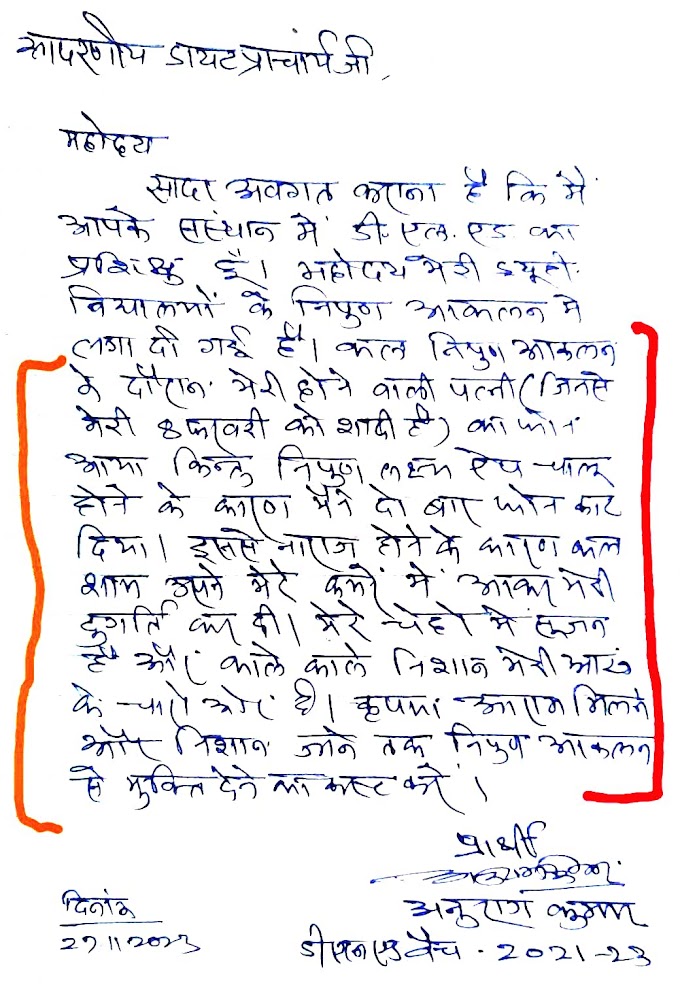 आदरणीय डायट प्राचार्य जी,
महोदय
सादर अवगत कराना है कि मैं
आपके संस्थान में डी. एल. एड का
प्रशिक्षु हूँ। महोदय मेरी ड्यूटी
विद्यालयों के निपुण आकलन में
लगा दी गई है। कल निपुण आकलन
के दौरान मेरी होने वाली पत्नी (जिनसे
मेरी 8 फरवरी को शादी है) का फोन
आया किन्तु निपुण लक्ष्य ऐप चालू
होने के कारण मैंने दो बार फोन काट
दिया। इससे नाराज होने के कारण कल
शाम उसने मेरे कमरे में आकर मेरी
दुर्गति कर दी। मेरे चेहरे में सूजन
है और काले काले निशान मेरी आंख
के चारो ओर है। कृपया आराम मिलने
और निशान जाने तक निपुण आकलन
से मुक्ति देने का कस्ट करें।
प्रार्थी
अनुराग कुमार
दिनांक
27112023
डी एल एड बैच - 2021-23